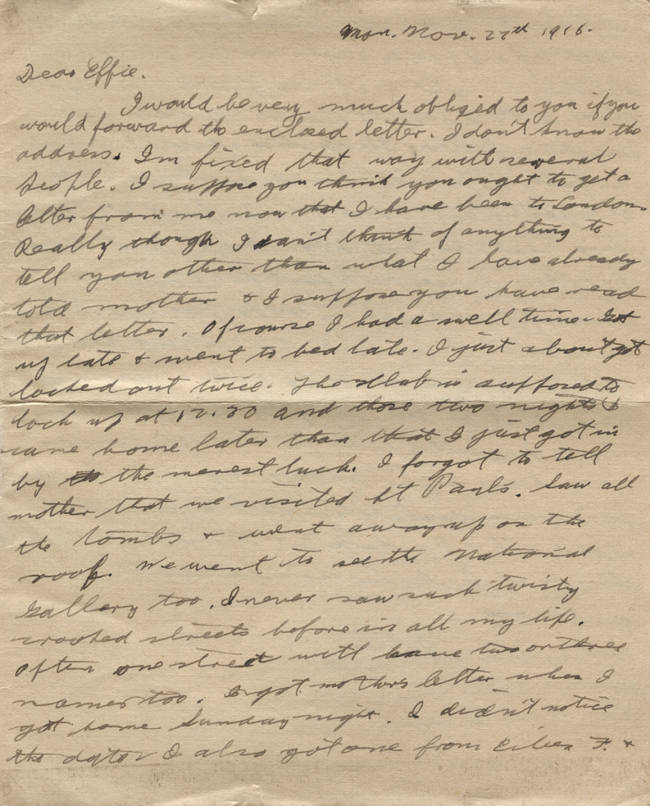 Mon. Nov. 27th 1916.
Dear Effie.
I would be very much obliged to you if you
would forward the enclosed letter. I don't know the
address. Im fixed that way with several
people. I suppose you think you ought to get a
letter from me now that I have been to London.
Really though I can't think of anything to
tell you other than what I have already
told mother & I suppose you have read
that letter. Of course I had a swell time. Got
up late & went to bed late. I just about got
locked out twice. The club is supposed to
lock up at 12.30 and those two nights I
came home later than that I just got in
by the the merest luck. I forgot to tell
mother that we visited St Pauls. Saw all
the tombs & went away up on the
roof. We went to see the National
Gallery too. I never saw such twisty
crooked streets before in all my life.
Often one street will have two or three
names too. I got mothers letter when I
got home Sunday night. I didn't notice
the date I also got one from Eileen F. &